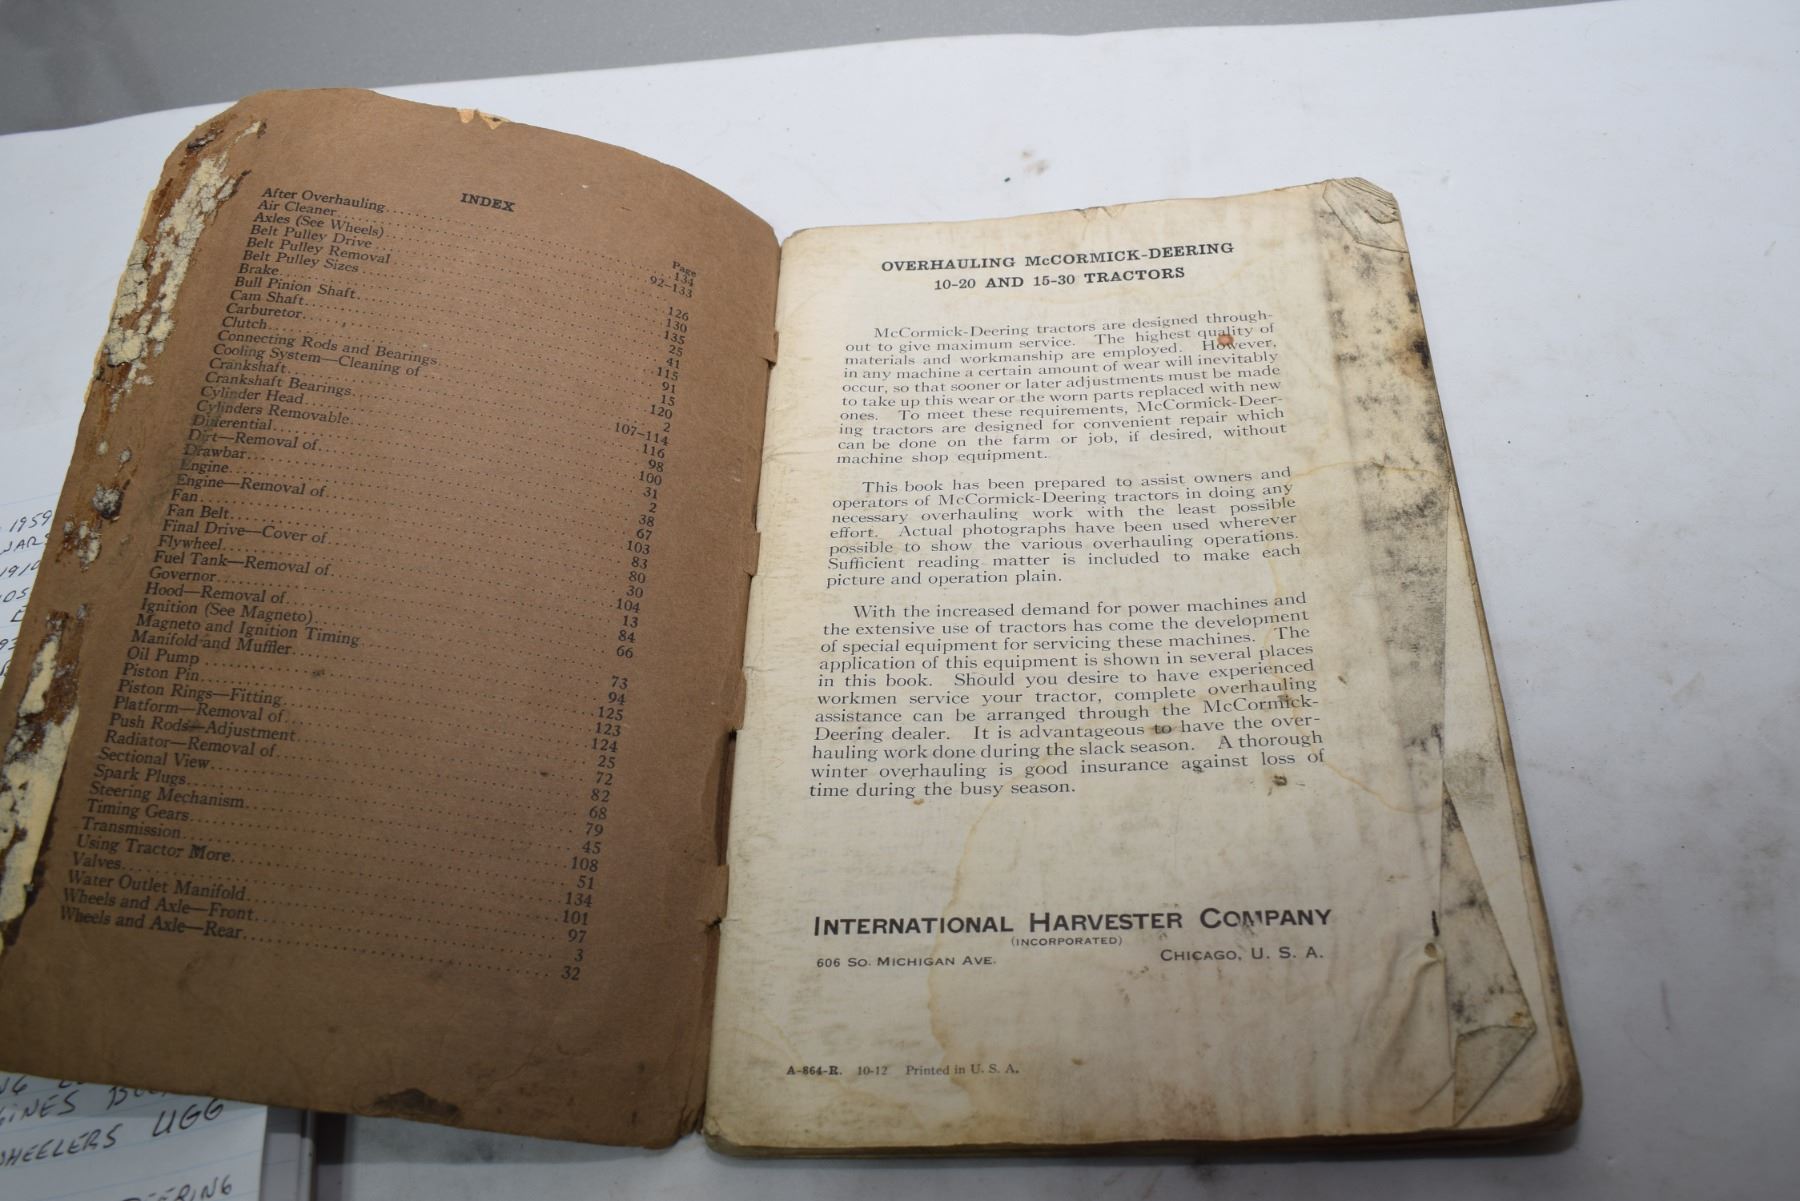 INDEX
Page
After Overhauling 134
Air Cleaner 92–133
Axles (See Wheels)
Belt Pulley Drive 126
Belt Pulley Removal 130
Belt Pulley Sizes 135
Brake 25
Bull Pinion Shaft 41
Cam Shaft 115
Carburetor 91
Clutch 15
Connecting Rods and Bearings 120
Cooling System—Cleaning of 2
Crankshaft 107–114
Crankshaft Bearings 116
Cylinder Head 98
Cylinders Removable 100
Differential 31
Dirt—Removal of 2
Drawbar 38
Engine 67
Engine—Removal of 103
Fan 83
Fan Belt 80
Final Drive—Cover of 30
Flywheel 104
Fuel Tank—Removal of 13
Governor 84
Hood—Removal of 66
Ignition (See Magneto)
Magneto and Ignition Timing 73
Manifold and Muffler 94
Oil Pump 125
Piston Pin 123
Piston Rings—Fitting 124
Platform—Removal of 25
Push Rods—Adjustment 72
Radiator—Removal of 82
Sectional View 68
Spark Plugs 79
Steering Mechanism 45
Timing Gears 108
Transmission 51
Using Tractor More 134
Valves 101
Water Outlet Manifold 97
Wheels and Axle—Front 3
Wheels and Axle—Rear 32
OVERHAULING McCORMICK-DEERING
10-20 AND 15-30 TRACTORS
McCormick-Deering tractors are designed through-
out to give maximum service. The highest quality of
materials and workmanship are employed. However,
in any machine a certain amount of wear will inevitably
occur, so that sooner or later adjustments must be made
to take up this wear or the worn parts replaced with new
ones. To meet these requirements, McCormick-Deer-
ing tractors are designed for convenient repair which
can be done on the farm or job, if desired, without
machine shop equipment.
This book has been prepared to assist owners and
operators of McCormick-Deering tractors in doing any
necessary overhauling work with the least possible
effort. Actual photographs have been used wherever
possible to show the various overhauling operations.
Sufficient reading matter is included to make each
picture and operation plain.
With the increased demand for power machines and
the extensive use of tractors has come the development
of special equipment for servicing these machines. The
application of this equipment is shown in several places
in this book. Should you desire to have experienced
workmen service your tractor, complete overhauling
assistance can be arranged through the McCormick-
Deering dealer. It is advantageous to have the over-
hauling work done during the slack season. A thorough
winter overhauling is good insurance against loss of
time during the busy season.
INTERNATIONAL HARVESTER COMPANY
(INCORPORATED)
606 SO. MICHIGAN AVE. CHICAGO, U. S. A.
A-864-R. 10-12 Printed in U. S. A.
1959
1910
WHEELERS UGG